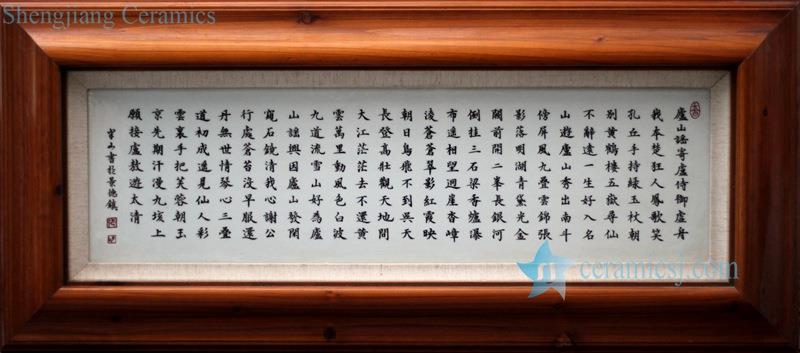 Shengjiang Ceramics
廬山謠寄廬侍御虛舟
我本楚狂人鳳歌笑
孔丘手持綠玉杖朝
別黃鶴樓五嶽尋仙
不辭遠一生好入名
山遊廬山秀出南斗
傍屏風九疊雲錦張
影落明湖青黛光金
闕前開二峯長銀河
倒挂三石梁香爐瀑
布遙相望迴崖沓嶂
淩蒼蒼翠影紅霞映
朝日鳥飛不到吳天
長登高壯觀天地間
大江茫茫去不還黃
雲萬里動風色白波
九道流雪山好為廬
山謠興因廬山發閑
窺石鏡清我心謝公
行處蒼苔沒早服還
丹無世情琴心三疊
道初成遙見仙人彩
雲裏手把芙蓉朝玉
京先期汗漫九垓上
願接盧敖遊太清
山書於景德鎮
ceramicsj.com